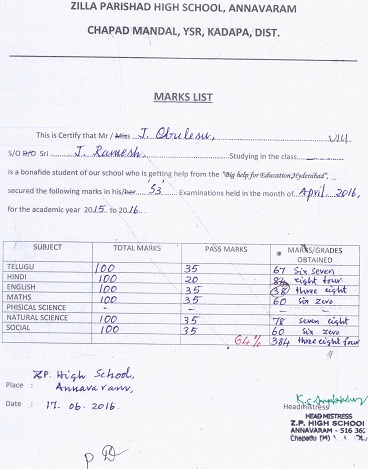 ZILLA PARISHAD HIGH SCHOOL, ANNAVARAM
CHAPAD MANDAL, YSR, KADAPA, DIST.
MARKS LIST
This is Certify that Mr / Miss J. Obulesu,
S/O D/O Sri J. Ramesh, Studying in the class VIII
is a bonafide student of our school who is getting help from the "Big help for Education, Hyderabad",
secured the following marks in his/her S3 Examinations held in the month of April 2016,
for the academic year 2015 to 2016.
SUBJECT TOTAL MARKS PASS MARKS MARKS/GRADES OBTAINED
TELUGU 100 35 67 Six seven
HINDI 100 20 84 eight four
ENGLISH 100 35 38 three eight
MATHS 100 35 60 six zero
PHISICAL SCIENCE - - - -
NATURAL SCIENCE 100 35 78 seven eight
SOCIAL 100 35 60 six zero
64% 384 three eight four
Z.P. High School,
Place : Annavaram,
Date : 17.06.2016.
Headmistress
HEAD MISTRESS
Z.P. HIGH SCHOOL
ANNAVARAM - 516 36
Chapadu (M)